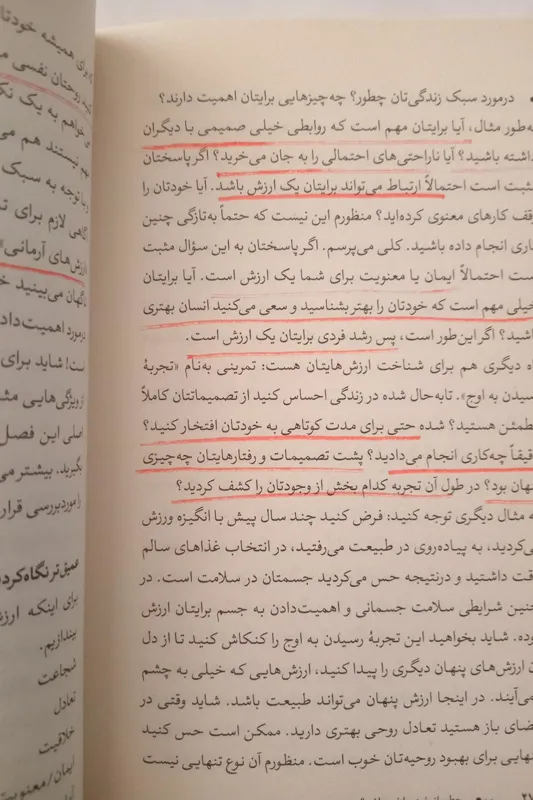 • درمورد سبک زندگی‌تان چطور؟ چه‌چیزهایی برایتان اهمیت دارند؟
به‌طور مثال، آیا برایتان مهم است که روابطی خیلی صمیمی با دیگران
داشته باشید؟ آیا ناراحتی‌های احتمالی را به جان می‌خرید؟ اگر پاسختان
مثبت است احتمالاً ارتباط می‌تواند برایتان یک ارزش باشد. آیا خودتان را
وقف کارهای معنوی کرده‌اید؟ منظورم این نیست که حتماً به‌تازگی چنین
کاری انجام داده باشید. کلی می‌پرسم. اگر پاسختان به این سؤال مثبت
است احتمالاً ایمان یا معنویت برای شما یک ارزش است. آیا برایتان
خیلی مهم است که خودتان را بهتر بشناسید و سعی می‌کنید انسان بهتری
باشید؟ اگر این‌طور است، پس رشد فردی برایتان یک ارزش است.
راه دیگری هم برای شناخت ارزش‌هایتان هست: تمرینی به‌نام «تجربهٔ
رسیدن به اوج». تابه‌حال شده در زندگی احساس کنید از تصمیماتتان کاملاً
مطمئن هستید؟ شده حتی برای مدت کوتاهی به خودتان افتخار کنید؟
دقیقاً چه‌کاری انجام می‌دادید؟ پشت تصمیمات و رفتارهایتان چه‌چیزی
پنهان بود؟ در طول آن تجربه کدام بخش از وجودتان را کشف کردید؟
به مثال دیگری توجه کنید: فرض کنید چند سال پیش با انگیزه ورزش
می‌کردید، به پیاده‌روی در طبیعت می‌رفتید، در انتخاب غذاهای سالم
دقت داشتید و درنتیجه حس می‌کردید جسمتان در سلامت است. در
چنین شرایطی سلامت جسمانی و اهمیت‌دادن به جسم برایتان ارزش
بوده. شاید بخواهید این تجربهٔ رسیدن به اوج را کنکاش کنید تا از دل
آن ارزش‌های پنهان دیگری را پیدا کنید، ارزش‌هایی که خیلی به چشم
نمی‌آیند. در اینجا ارزش پنهان می‌تواند طبیعت باشد. شاید وقتی در
فضای باز هستید تعادل روحی بهتری دارید. ممکن است حس کنید
تنهایی برای بهبود روحیه‌تان خوب است. منظورم آن نوع تنهایی نیست
برای همیشه خودتان
روحتان نفسی
خواهم به یک
مهم نیستند هم
باتوجه به سبک
لازم برای
ارزش‌های آرمانی»
ناگهان می‌بینید
درمورد اهمیت‌داد
است! شاید برای
از ویژگی‌هایی
اصلی این فصل
بگیرید. بیشتر
را موردبررسی قرار
عمیق‌تر نگاه‌کرد
برای اینکه
بیندازیم.
شجاعت
تعادل
خلاقیت
ایمان/معنویت